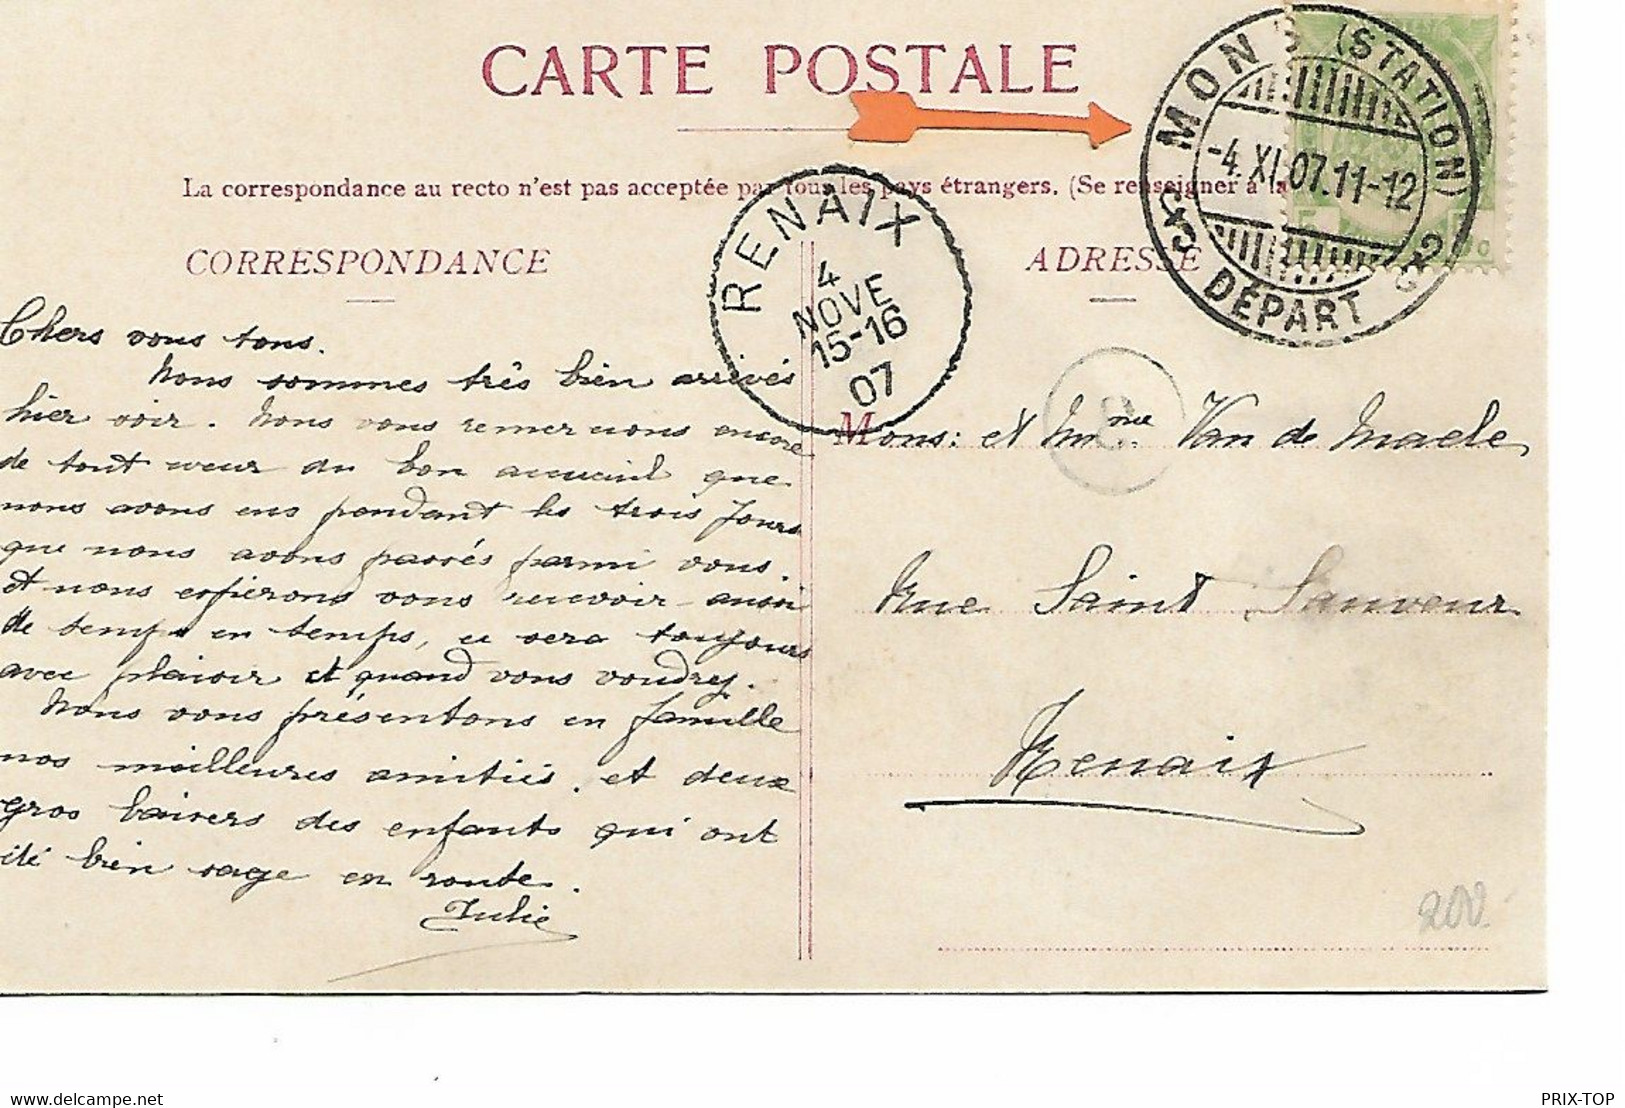 CARTE POSTALE
La correspondance au recto n'est pas acceptée par tous les pays étrangers. (Se renseigner à la
CORRESPONDANCE
ADRESSE
MONS (STATION)
-4.XI.07.11-12
DÉPART
RENAIX
4
NOVE
15-16
07
8
Chers vous tous.
Nous sommes très bien arrivés
hier soir. Nous vous remercions encore
de tout cœur du bon accueuil que
nous avons eus pendant les trois jours
que nous avons passés parmi vous.
et nous espérons vous recevoir aussi
de temps en temps, ce sera toujours
avec plaisir et quand vous voudrez.
Nous vous présentons en famille
nos meilleures amitiés. et deux
gros baisers des enfants qui ont
été bien sage en route.
Julie
Mons: et Mme Van de Maele
Rue Saint Sauveur
Renaix
200
www.delcampe.net
PRIX-TOP